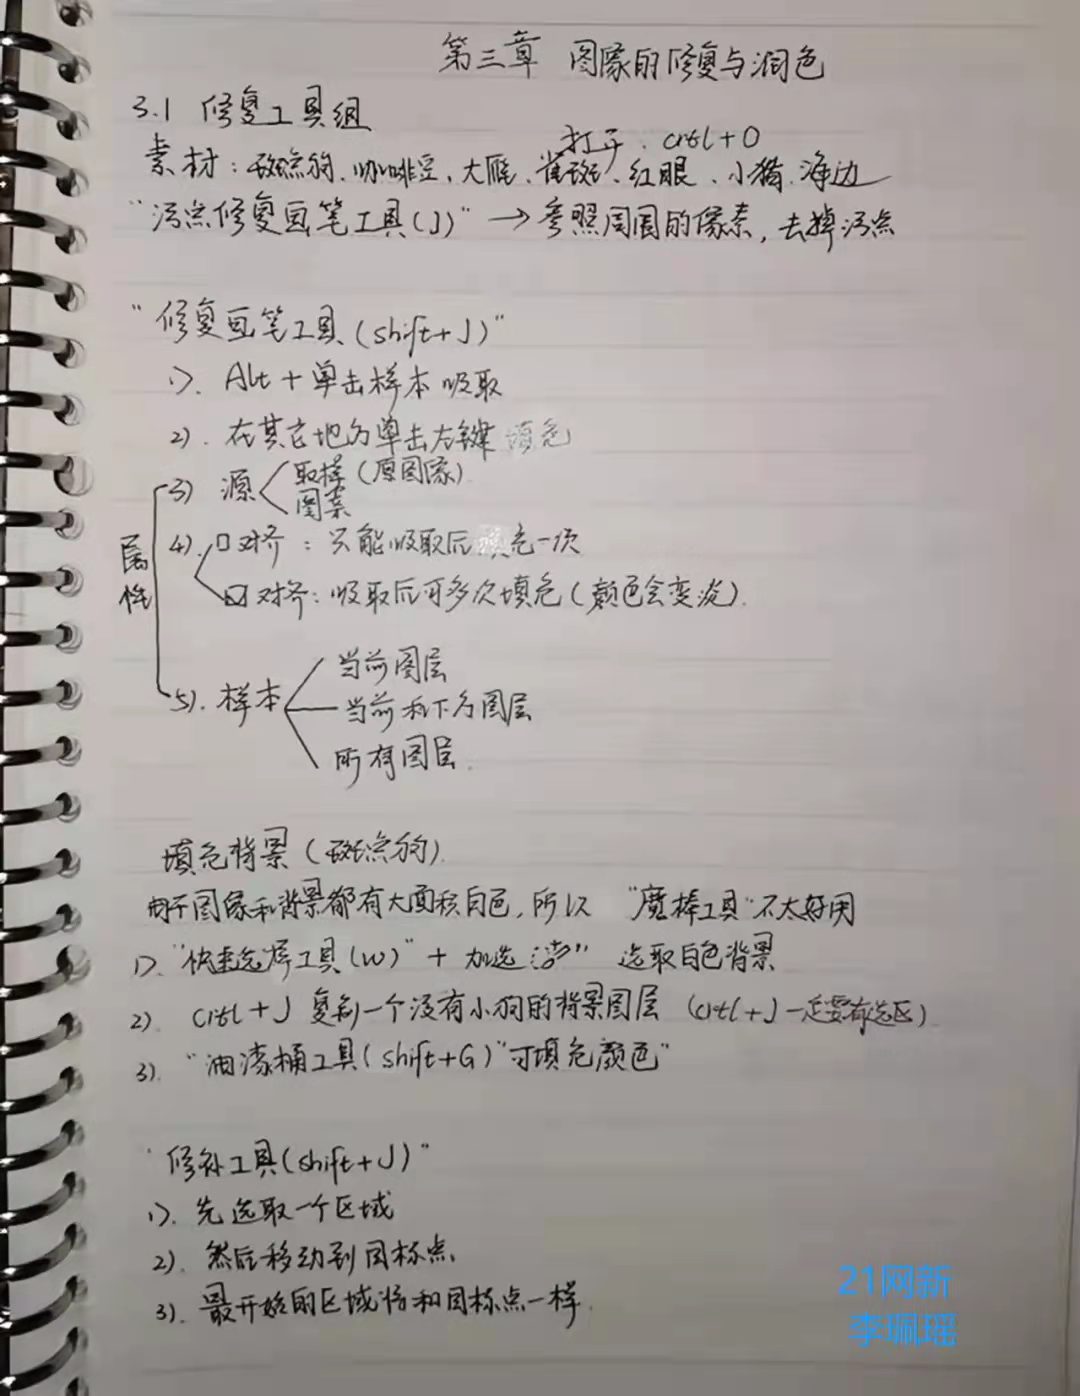 第三章 图像的修复与润色
3.1 修复工具组
打开：crtl+O
素材：斑点狗、咖啡豆、大雁、雀斑、红眼、小猪、海边
“污点修复画笔工具(J)” → 参照周围的像素，去掉污点
“修复画笔工具(shift+J)”
1). Alt+单击样本吸取
2). 在其它地方单击左键填充
属性
3) 源 取样（原图像）
图案
4). 口对齐：只能吸取后填充一次
☑对齐：吸取后可多次填充（颜色会变淡）.
5). 样本
当前图层
当前和下方图层
所有图层.
填充背景（斑点狗）.
由于图像和背景都有大面积白色，所以“魔棒工具”不太好用
1). “快速选择工具(W)”+ 加选 选取白色背景
2). crtl+J 复制一个没有小狗的背景图层（crtl+J一定要有选区）
3). “油漆桶工具(shift+G)”可填充颜色”
“修补工具(shift+J)”
1). 先选取一个区域
2). 然后移动到目标点.
3). 最开始的区域将和目标点一样.
21网新
李珮瑶